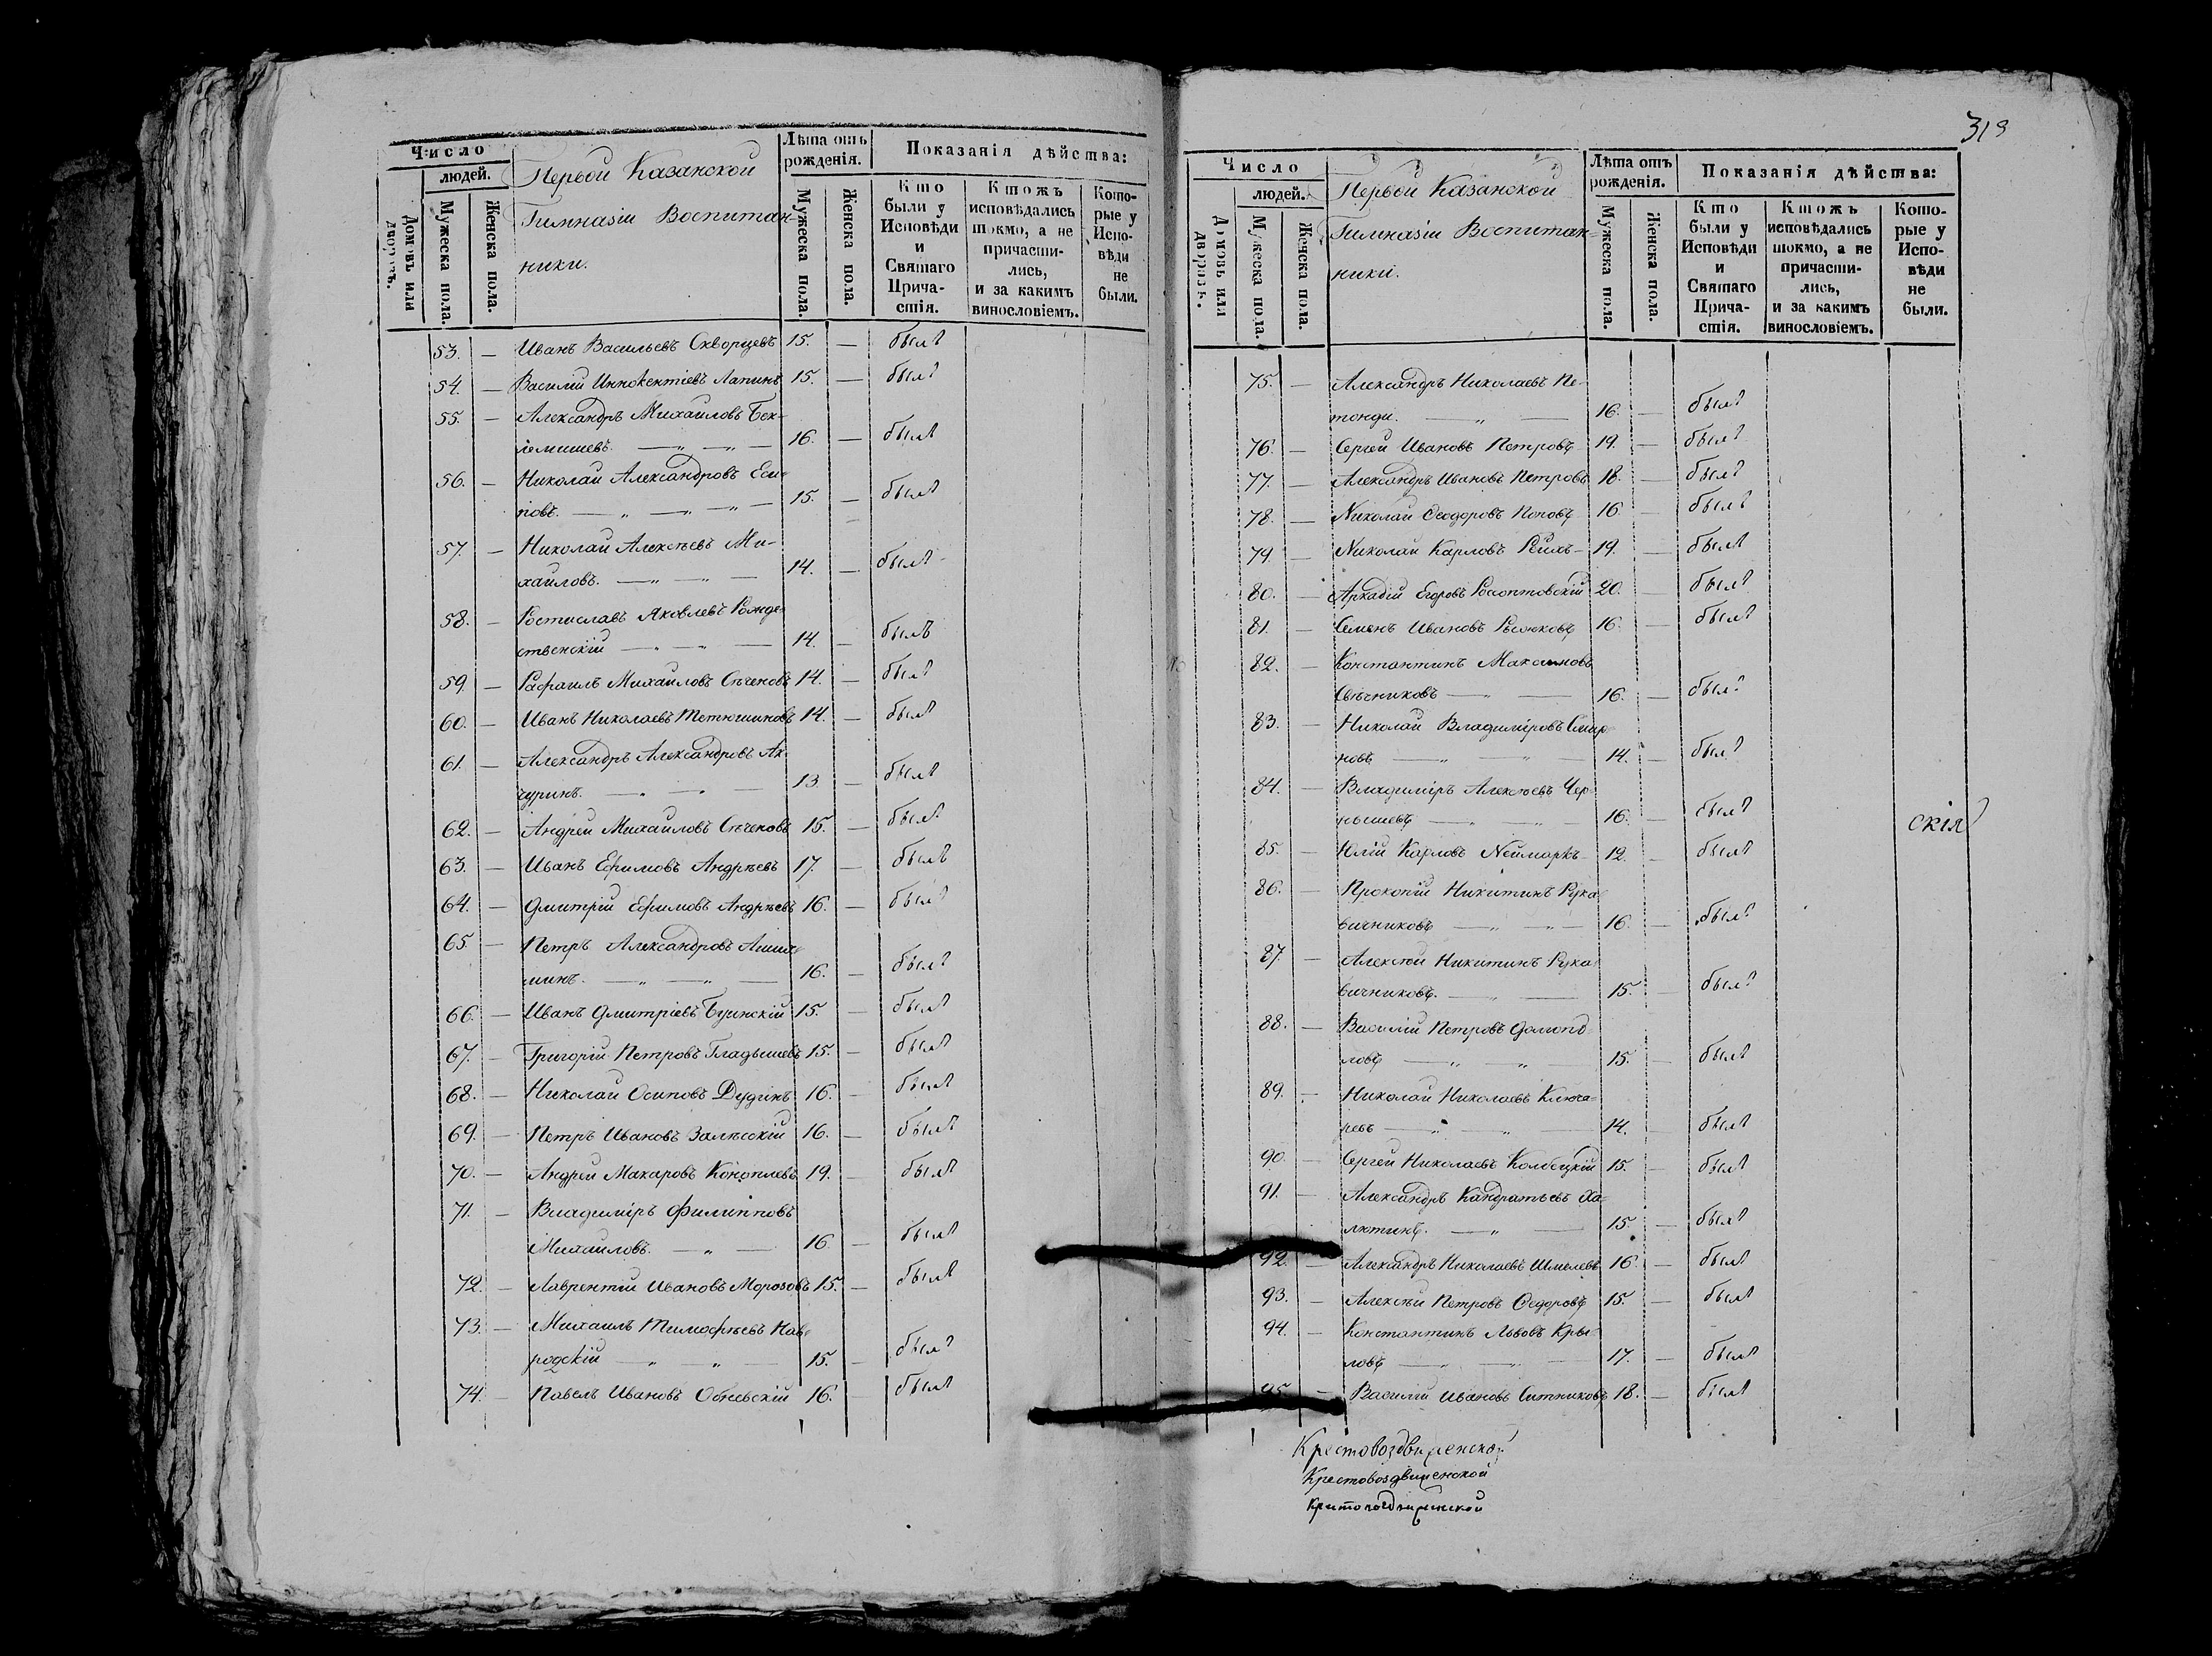 Число
людей.
Домовъ или дворовъ.
Мужеска пола.
Женска пола.
Первой Казанской
Гимназіи Воспитан-
ники.
Лѣта отъ рожденія.
Мужеска пола.
Женска пола.
Показанія дѣйства:
Кто были у Исповѣди и Святаго Прича-стія.
Ктожъ исповѣдались токмо, а не причасти-лись, и за какимъ винословіемъ.
Кото-рые у Испо-вѣди не были.
53. — Иванъ Васильевъ Скворцевъ 15. — былъ
54. — Василій Иннокентіевъ Лапинъ 15. — былъ
55. — Александръ Михаиловъ Бек-
лемишевъ. — „ — „ — 16. — былъ
56. — Николай Александровъ Еси-
повъ. — „ — „ — 15. — былъ
57. — Николай Алексѣевъ Ми-
хаиловъ. — „ — „ — 14. — былъ
58. — Ростиславъ Яковлевъ Рожде-
ственскій — „ — „ — 14. — былъ
59. — Рафаилъ Михаиловъ Сѣченовъ 14. — былъ
60. — Иванъ Николаевъ Тетюшиновъ 14. — былъ
61. — Александръ Александровъ Ак-
чуринъ. — „ — „ — 13 — былъ
62. — Андрей Михаиловъ Сѣченовъ 15. — былъ
63. — Иванъ Ефимовъ Андрѣевъ 17. — былъ
64. — Дмитрій Ефимовъ Андрѣевъ 16. — былъ
65. — Петръ Александровъ
минъ. — „ — „ — 16. — былъ
66. — Иванъ Дмитріевъ Буинскій 15. — былъ
67. — Григорій Петровъ Гладышевъ 15. — былъ
68. — Николай Осиповъ Дудинъ 16. — былъ
69. — Петръ Ивановъ Залѣсскій 16. — былъ
70. — Андрей Макаровъ Коноплевъ 19. — былъ
71. — Владиміръ Филипповъ
Михаиловъ. — „ — 16. — былъ
72. — Лаврентій Ивановъ Морозовъ 15. — былъ
73. — Михаилъ Тимофѣевъ Нав-
родскій — „ — „ — 15. — былъ
74. — Павелъ Ивановъ Обневскій 16. — былъ
319
Число
людей.
Домовъ или дворовъ.
Мужеска пола.
Женска пола.
Первой Казанской
Гимназіи Воспитан-
ники.
Лѣта отъ рожденія.
Мужеска пола.
Женска пола.
Показанія дѣйства:
Кто были у Исповѣди и Святаго Прича-стія.
Ктожъ исповѣдались токмо, а не причасти-лись, и за какимъ винословіемъ.
Кото-рые у Испо-вѣди не были.
75. — Александръ Николаевъ Пе-
тонди. — „ — 16. — былъ
76. — Сергей Ивановъ Петровъ 19. — былъ
77. — Александръ Ивановъ Петровъ 18. — былъ
78. — Николай Ѳеодоровъ Поповъ 16. — былъ
79. — Николай Карловъ Рейхъ — 19. — былъ
80. — Аркадій Егоровъ 20. — былъ
81. — Семенъ Ивановъ Рыжковъ 16. — былъ
82. — Константинъ Максимовъ
Свѣчниковъ — „ — 16. — былъ
83. — Николай Владиміровъ Смир-
новъ — „ — „ — 14. — былъ
84. — Владиміръ Алексѣевъ Чер-
нышевъ — „ — „ — 16. — былъ
скія
85. — Юлій Карловъ Неймаркъ — 12. — былъ
86. — Прокопій Никитинъ Рука-
вичниковъ — „ — „ — 16. — былъ
87. — Алексѣй Никитинъ Рука-
вичниковъ. — „ — 15. — былъ
88. — Василій Петровъ
ловъ — „ — „ — 15. — былъ
89. — Николай Николаевъ Ключа-
ревъ — „ — „ — 14. — былъ
90. — Сергей Николаевъ Колбецкій 15. — былъ
91. — Александръ Кандратьевъ Ха-
лютинъ. — „ — 15. — былъ
92. — Александръ Николаевъ Шмелевъ 16. — былъ
93. — Алексѣй Петровъ Ѳедоровъ 15. — былъ
94. — Константинъ Львовъ Кры-
ловъ — „ — „ — 17. — былъ
95. — Василій Ивановъ Ситниковъ 18. — былъ
Крестовоздвиженской
Крестовоздвиженской